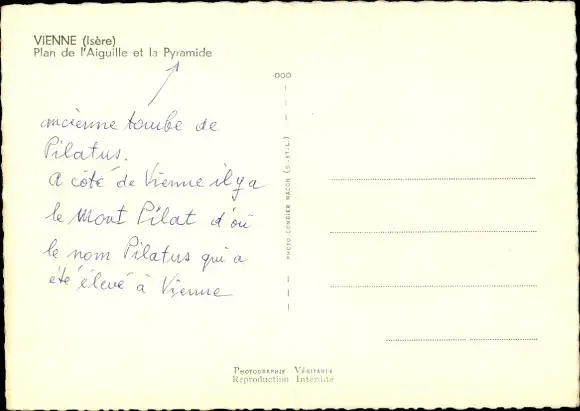 VIENNE (Isère)
Plan de l'Aiguille et la Pyramide
ancienne tombe de
Pilatus.
A coté de Vienne il y a
le Mont Pilat d'où
le nom Pilatus qui a
été élevé à Vienne
000
PHOTO-COMBIER MACON (S.-ET-L.)
PHOTOGRAPHIE VÉRITABLE
Reproduction Interdite